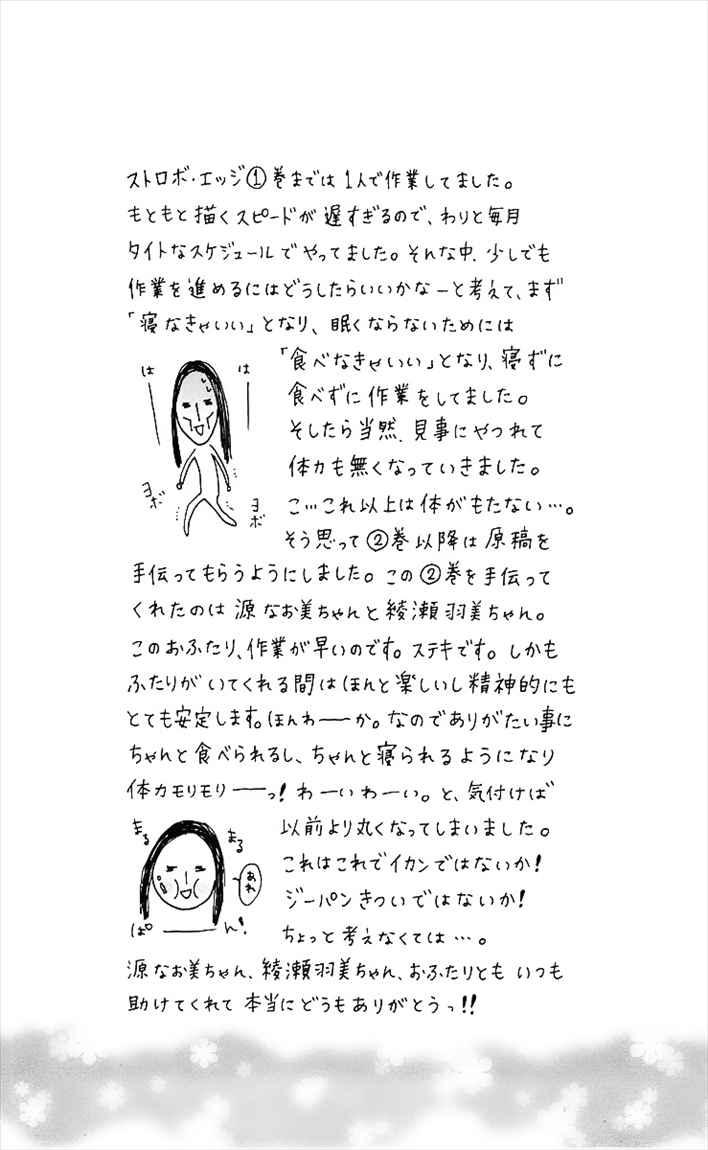 ストロボ・エッジ①巻までは1人で作業してました。
もともと描くスピードが遅すぎるので、わりと毎月
タイトなスケジュールでやってました。そんな中、少しでも
作業を進めるにはどうしたらいいかなーと考えて、まず
「寝なきゃいい」となり、眠くならないためには
「食べなきゃいい」となり、寝ずに
食べずに作業をしてました。
そしたら当然、見事にやつれて
体力も無くなっていきました。
こ…これ以上は体がもたない…。
そう思って②巻以降は原稿を
は
は
ヨボ
ヨボ
手伝ってもらうようにしました。この②巻を手伝って
くれたのは源なお美ちゃんと綾瀬羽美ちゃん。
このおふたり、作業が早いのです。ステキです。しかも
ふたりがいてくれる間はほんと楽しいし精神的にも
とても安定します。ほんわーか。なのでありがたい事に
ちゃんと食べられるし、ちゃんと寝られるようになり
体力モリモリーっ!わーいわーい。と、気付けば
以前より丸くなってしまいました。
これはこれでイカンではないか!
ジーパンきついではないか!
ちょっと考えなくては…。
まる
まる
あれ
ぱーん!
源なお美ちゃん、綾瀬羽美ちゃん、おふたりともいつも
助けてくれて本当にどうもありがとうっ!!